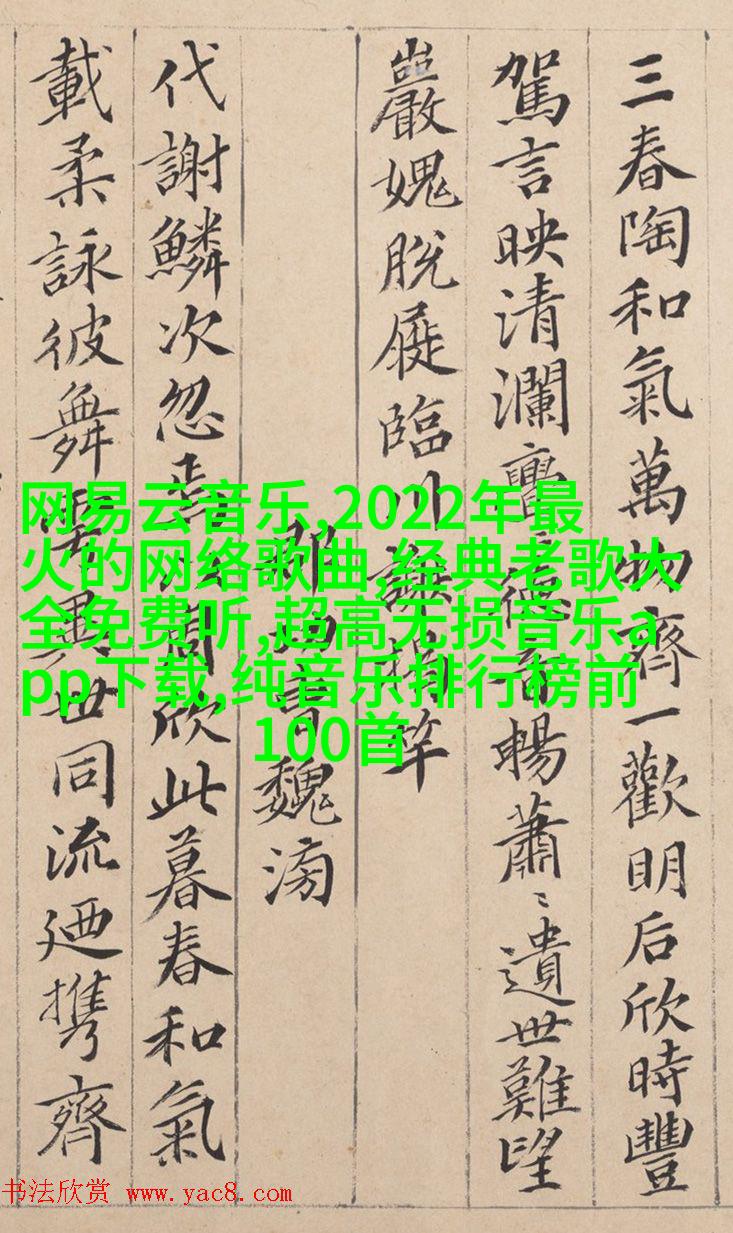 三春陶和氣萬物齊一歡明后欣時豐
駕言映清瀾亹〻德音暢蕭〻遺世難望
巖媿脫屣臨川謝揭竿
郡功曹魏滂
代謝鱗次忽焉以周欣此暮春和氣
載柔詠彼舞雩異世同流迺携齊
网易云音乐,2022年最
火的网络歌曲,经典老歌大
全免费听,超高无损音乐a
pp下载,纯音乐排行榜前
100首
书法欣赏 www.yac8.com